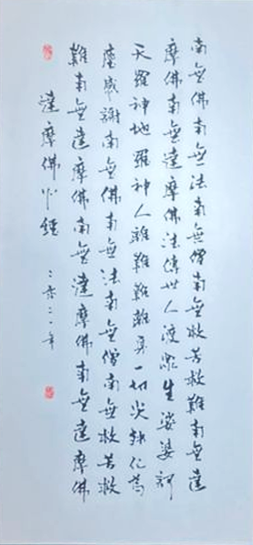 南無佛南無法南無僧南無救苦救難南無達
摩佛南無達摩佛法傳世人渡眾生娑婆訶
天羅神地羅神人離難難離身一切災殃化為
塵感謝南無佛南無法南無僧南無救苦救
難南無達摩佛南無達摩佛南無達摩佛
達摩佛心經